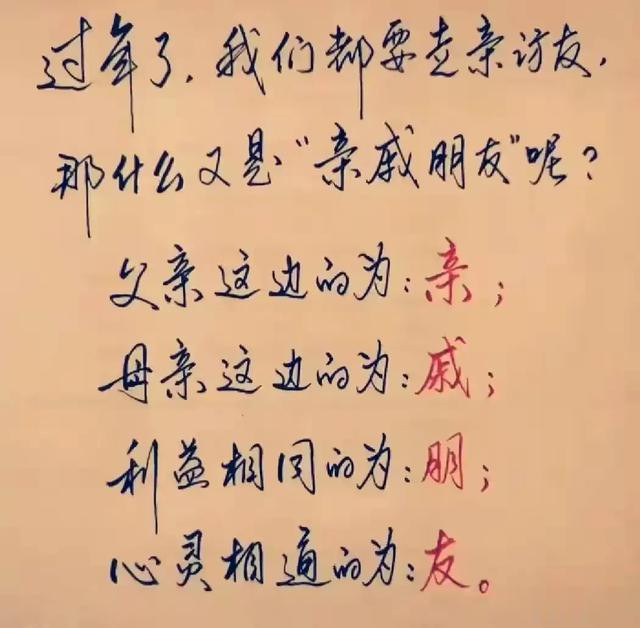 过年了，我们都要走亲访友，
那什么又是“亲戚朋友”呢？
父亲这边的为：亲；
母亲这边的为：戚；
利益相同的为：朋；
心灵相通的为：友。